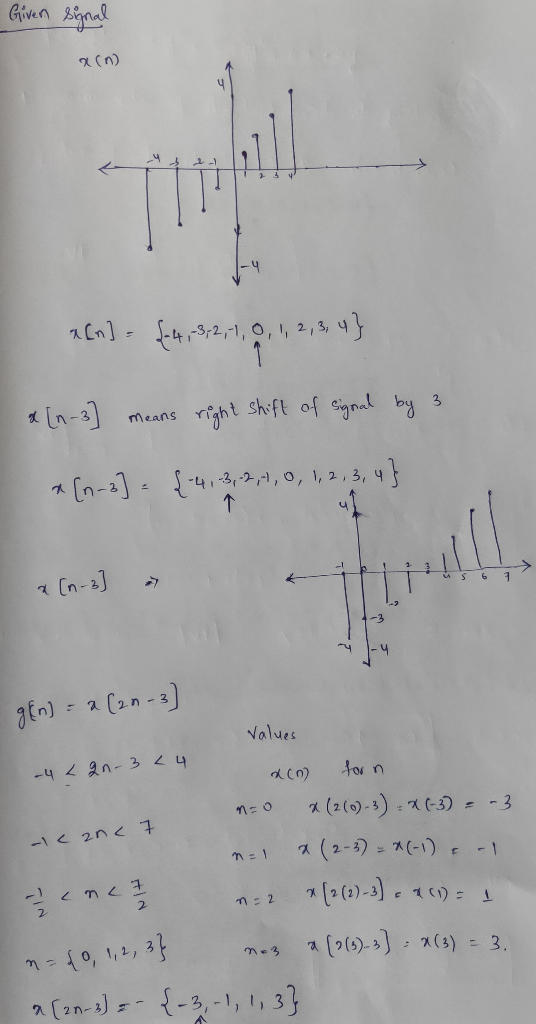 Given Signal
x(n)
4
-4 -3 -2 -1
1 2 3 4
-4
x[n] = {-4,-3,-2,-1, 0, 1, 2, 3, 4}
↑
x[n-3] means right shift of signal by 3
x[n-3] = {-4,-3,-2,-1, 0, 1, 2, 3, 4}
↑
4
x[n-3] ⇒
-1 0 1 2 3 4 5 6 7
-2
-3
-4 -4
g[n] = x[2n-3]
Values
-4 < 2n-3 < 4
x(n) for n
n=0 x(2(0)-3) = x(-3) = -3
-1 < 2n < 7
n=1 x(2-3) = x(-1) = -1
-1/2 < n < 7/2
n=2 x[2(2)-3] = x(1) = 1
n = {0, 1, 2, 3}
n=3 x[2(3)-3] = x(3) = 3.
x[2n-3] = - {-3, -1, 1, 3}
↑